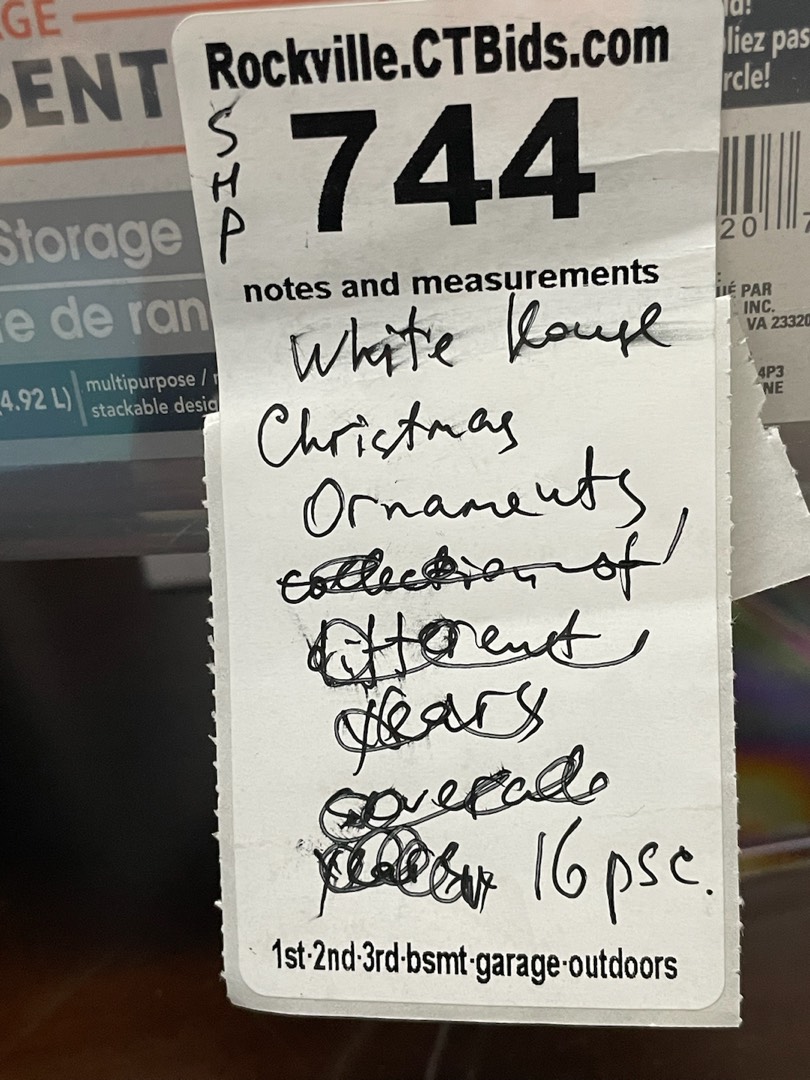 GE
SENT
Storage
e de ran
4.92 L)
multipurpose /
stackable desig
Rockville.CTBids.com
SHP
744
notes and measurements
White House
Christmas
Ornaments,
collection of
different
years
16 psc.
1st·2nd·3rd·bsmt·garage·outdoors
liez pas
rcle!
20
UÉ PAR
INC.
VA 23320
4P3
NE